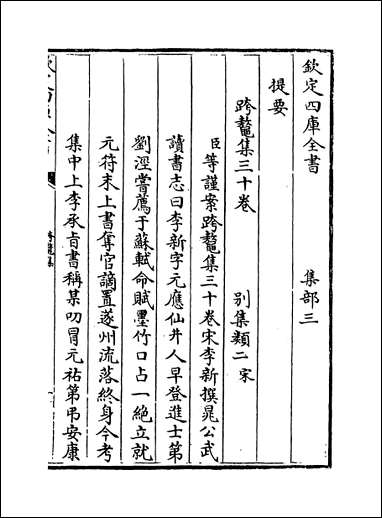 欽定四庫全書 集部三
提要
跨鼇集三十卷 别集類二 宋
臣等謹案跨鼇集三十卷宋李新撰晁公武
讀書志曰李新字元應仙井人早登進士第
劉涇嘗薦于蘇軾命賦墨竹口占一絶立就
元符末上書奪官謫置遂州流落終身今考
集中上李承㫖書稱某叨冒元祐第弔安康